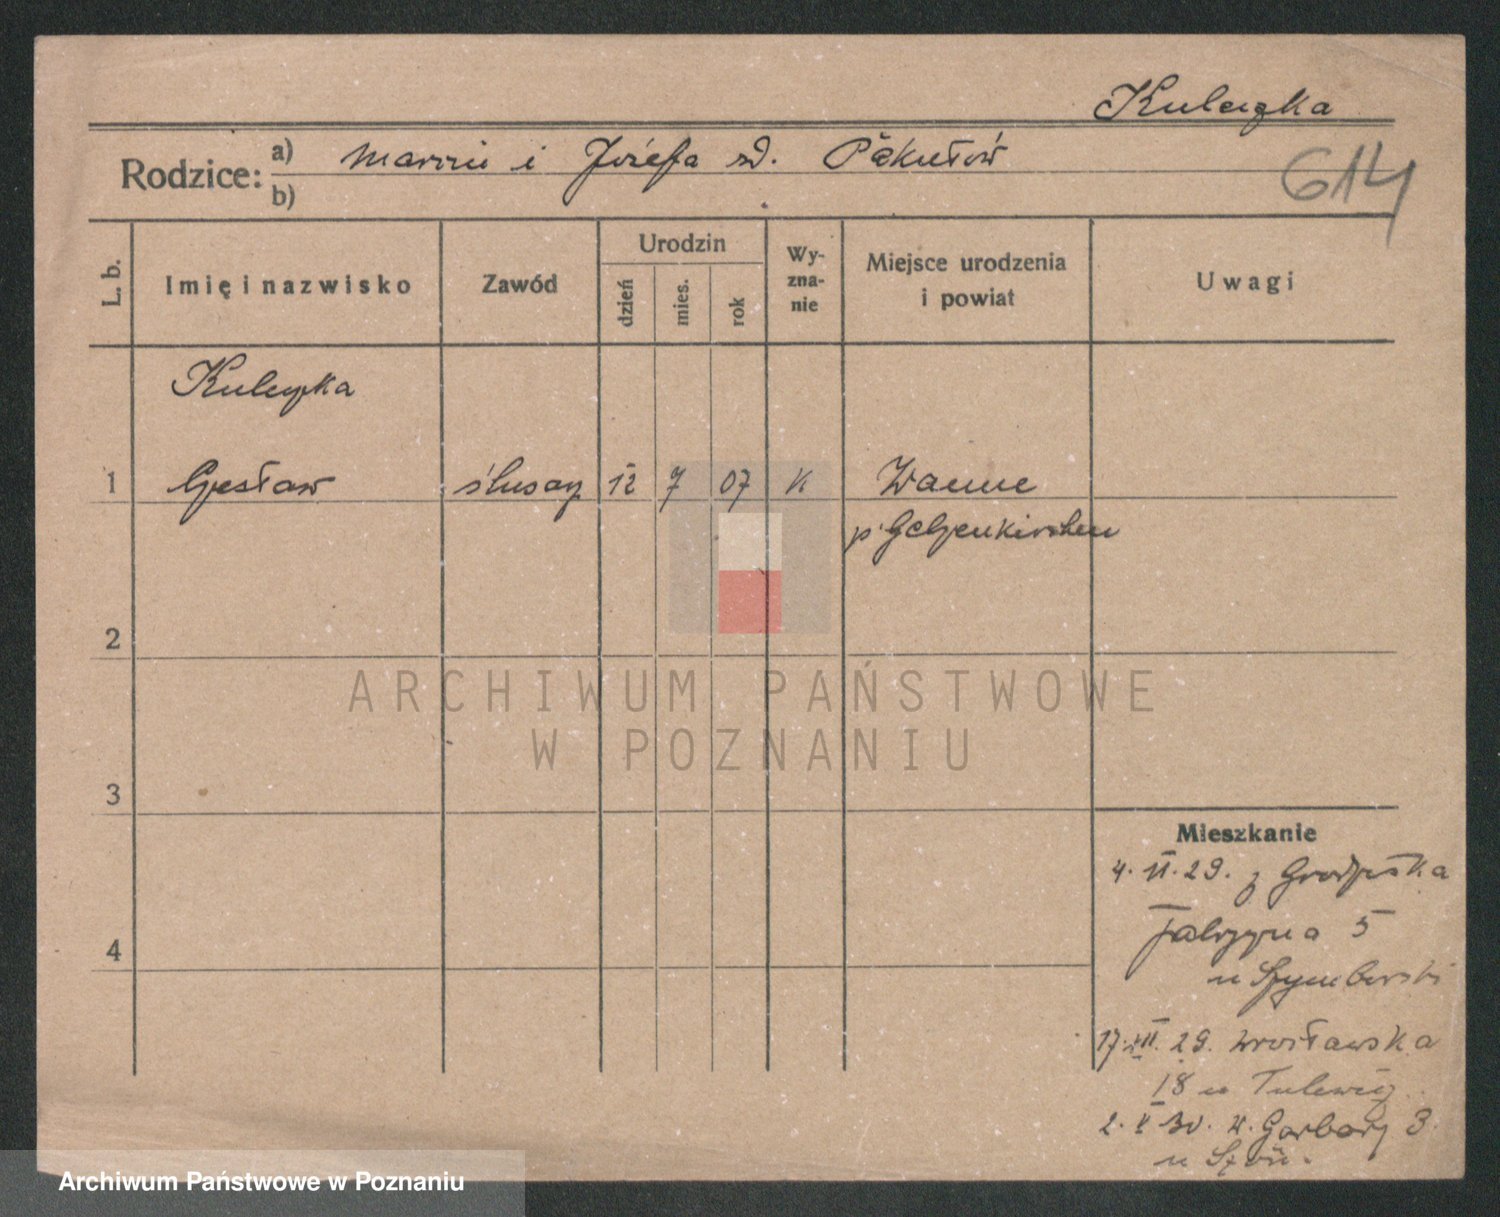 Kulczka
Rodzice: a) Marcin i Józefa zd. Pakułów
b)
614
L. b.
Imię i nazwisko
Zawód
Urodzin
dzień
mies.
rok
Wy-
zna-
nie
Miejsce urodzenia
i powiat
Uwagi
Kulczka
1 Czesław ślusarz 12 7 07 K Wanne
p. Gelsenkirchen
2
3
4
Mieszkanie
4. II. 29. z Grodziska
5
u Szymborski
17. XII. 29. Wrocławska
18 u
2. V 30. W. Garbary 3.
u
ARCHIWUM PAŃSTWOWE
W POZNANIU
Archiwum Państwowe w Poznaniu